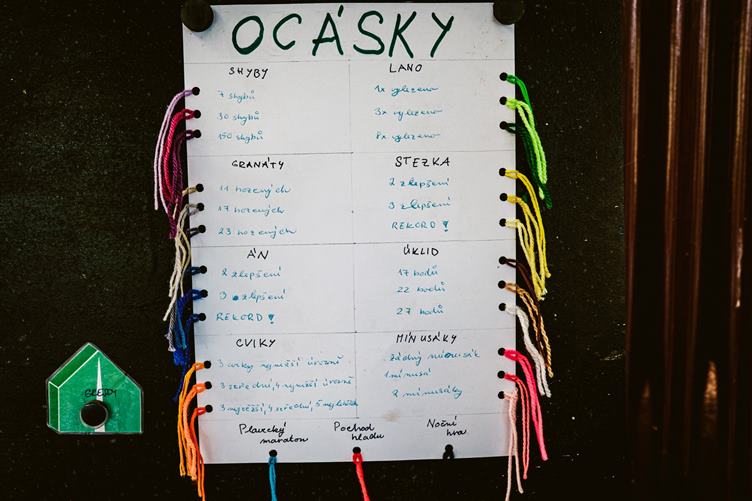 OCÁSKY
SHYBY
7 shybů
30 shybů
150 shybů
LANO
1x vylezeno
3x vylezeno
8x vylezeno
GRANÁTY
11 hozených
17 hozených
23 hozených
STEZKA
2 zlepšení
3 zlepšení
REKORD!
ÁN
2 zlepšení
3 zlepšení
REKORD!
ÚKLID
17 bodů
22 bodů
27 bodů
CVIKY
3 cviky nejnižší úrovně
3 střední, 4 nejnižší úrovně
3 nejvyšší, 4 střední, 5 nejnižších
MÍNUSÁKY
žádný mínusák
1 mínusák
2 mínusáky
Plavecký
maraton
Pochod
hladu
Noční
hra